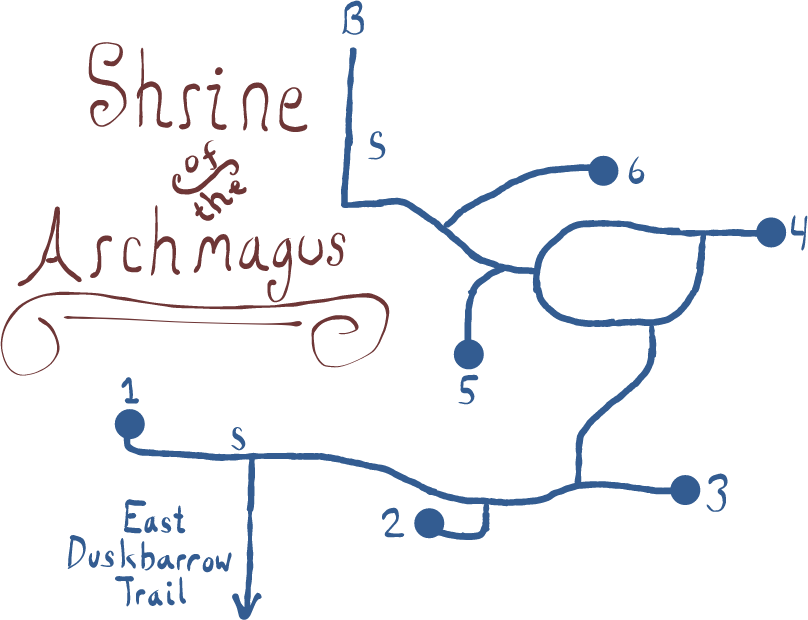 B
Shrine
of
the
Archmagus
S
6
4
5
1
S
3
2
East
Duskbarrow
Trail